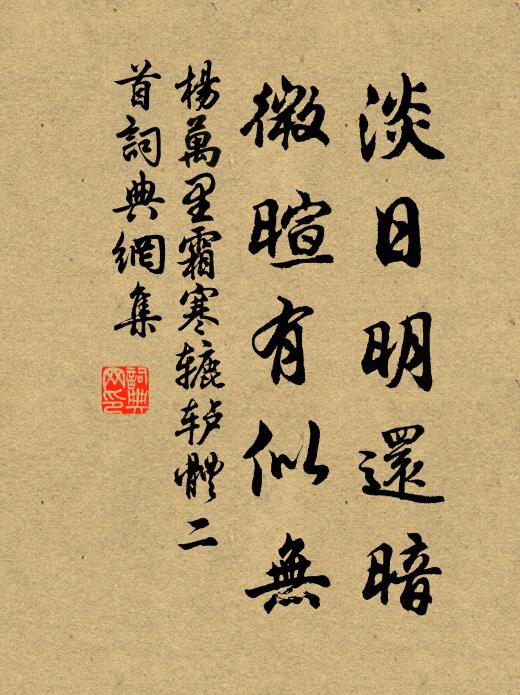 淡日明還暗
微暄有似無
楊萬里霜寒辘轳體二
首詞典網集
詞典网印